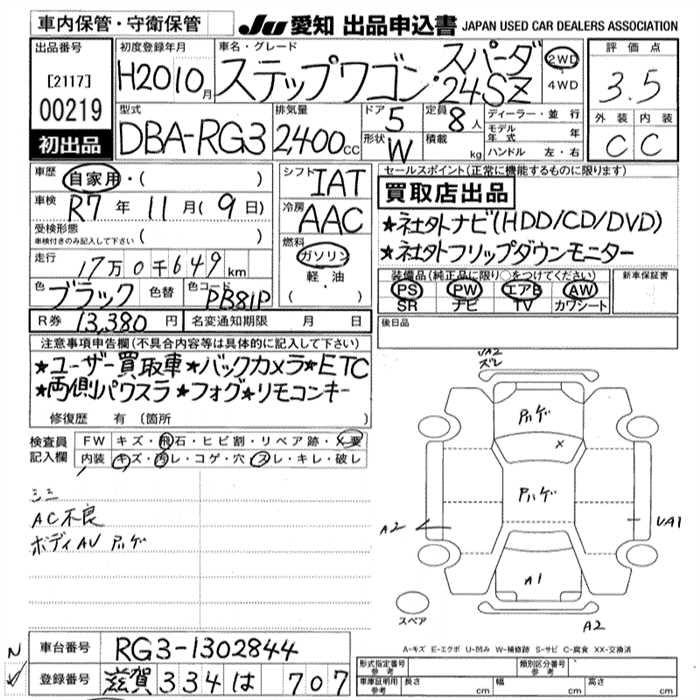 車内保管・守衛保管
JU 愛知 出品申込書 JAPAN USED CAR DEALERS ASSOCIATION
出品番号
[2117]
00219
初出品
初度登録年月
H20 10月
車名・グレード
ステップワゴン・スパーダ 24SZ
2WD ・ 4WD
評価点
3.5
外装 内装
C C
型式
DBA-RG3
排気量
2,400cc
ドア 5
形状 W
定員 8人
積載 kg
ディーラー・並行
モデル年式 年
ハンドル 左・右
車歴
自家用・( )
車検
R7年11月(9日)
受検形態
車検付きのみ記入して下さい ( )
走行
17万0千649km
色 ブラック 色替 色コード PB81P
R券 13,380円 名変通知期限 月 日
シフト IAT
冷房 AAC
燃料
ガソリン・軽油
( )
セールスポイント(正常に機能するものに限ります)
買取店出品
★社外ナビ(HDD/CD/DVD)
★社外フリップダウンモニター
装備品(純正品に限り○をつけてください)
PS PW エアB AW
SR ナビ TV カワシート
新車保証書
後日品
注意事項申告欄(不具合内容等は具体的に記入して下さい)
★ユーザー買取車★バックカメラ★ETC
★両側パワスラ★フォグ★リモコンキー
修復歴 有(箇所 )
検査員記入欄
FW キズ・飛石・ヒビ割・リペア跡・X要
内装 キズ・汚レ・コゲ・穴・スレ・キレ・破レ
シミ
AC不良
ボディAU アハゲ
UA2
ズレ
アハゲ
X
アハゲ
A2
UA1
A1
スペア
A2
A-キズ E-エクボ U-凹み W-補修跡 S-サビ C-腐食 XX-交換済
車台番号 RG3-1302844
登録番号 滋賀 334 は 707
形式指定番号 参考 類別区分番号 参考
車庫証明用 参考 長さ cm 幅 cm 高さ cm
N